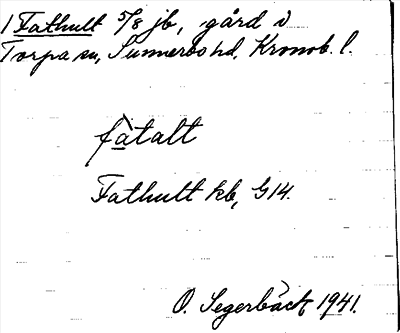 1 Fathult 5/8 jb, gård i
Torpa sn, Sunnerbo hd, Kronob. l.
fàtalt
Fathult kb, G14.
O. Segerbäck 1941.